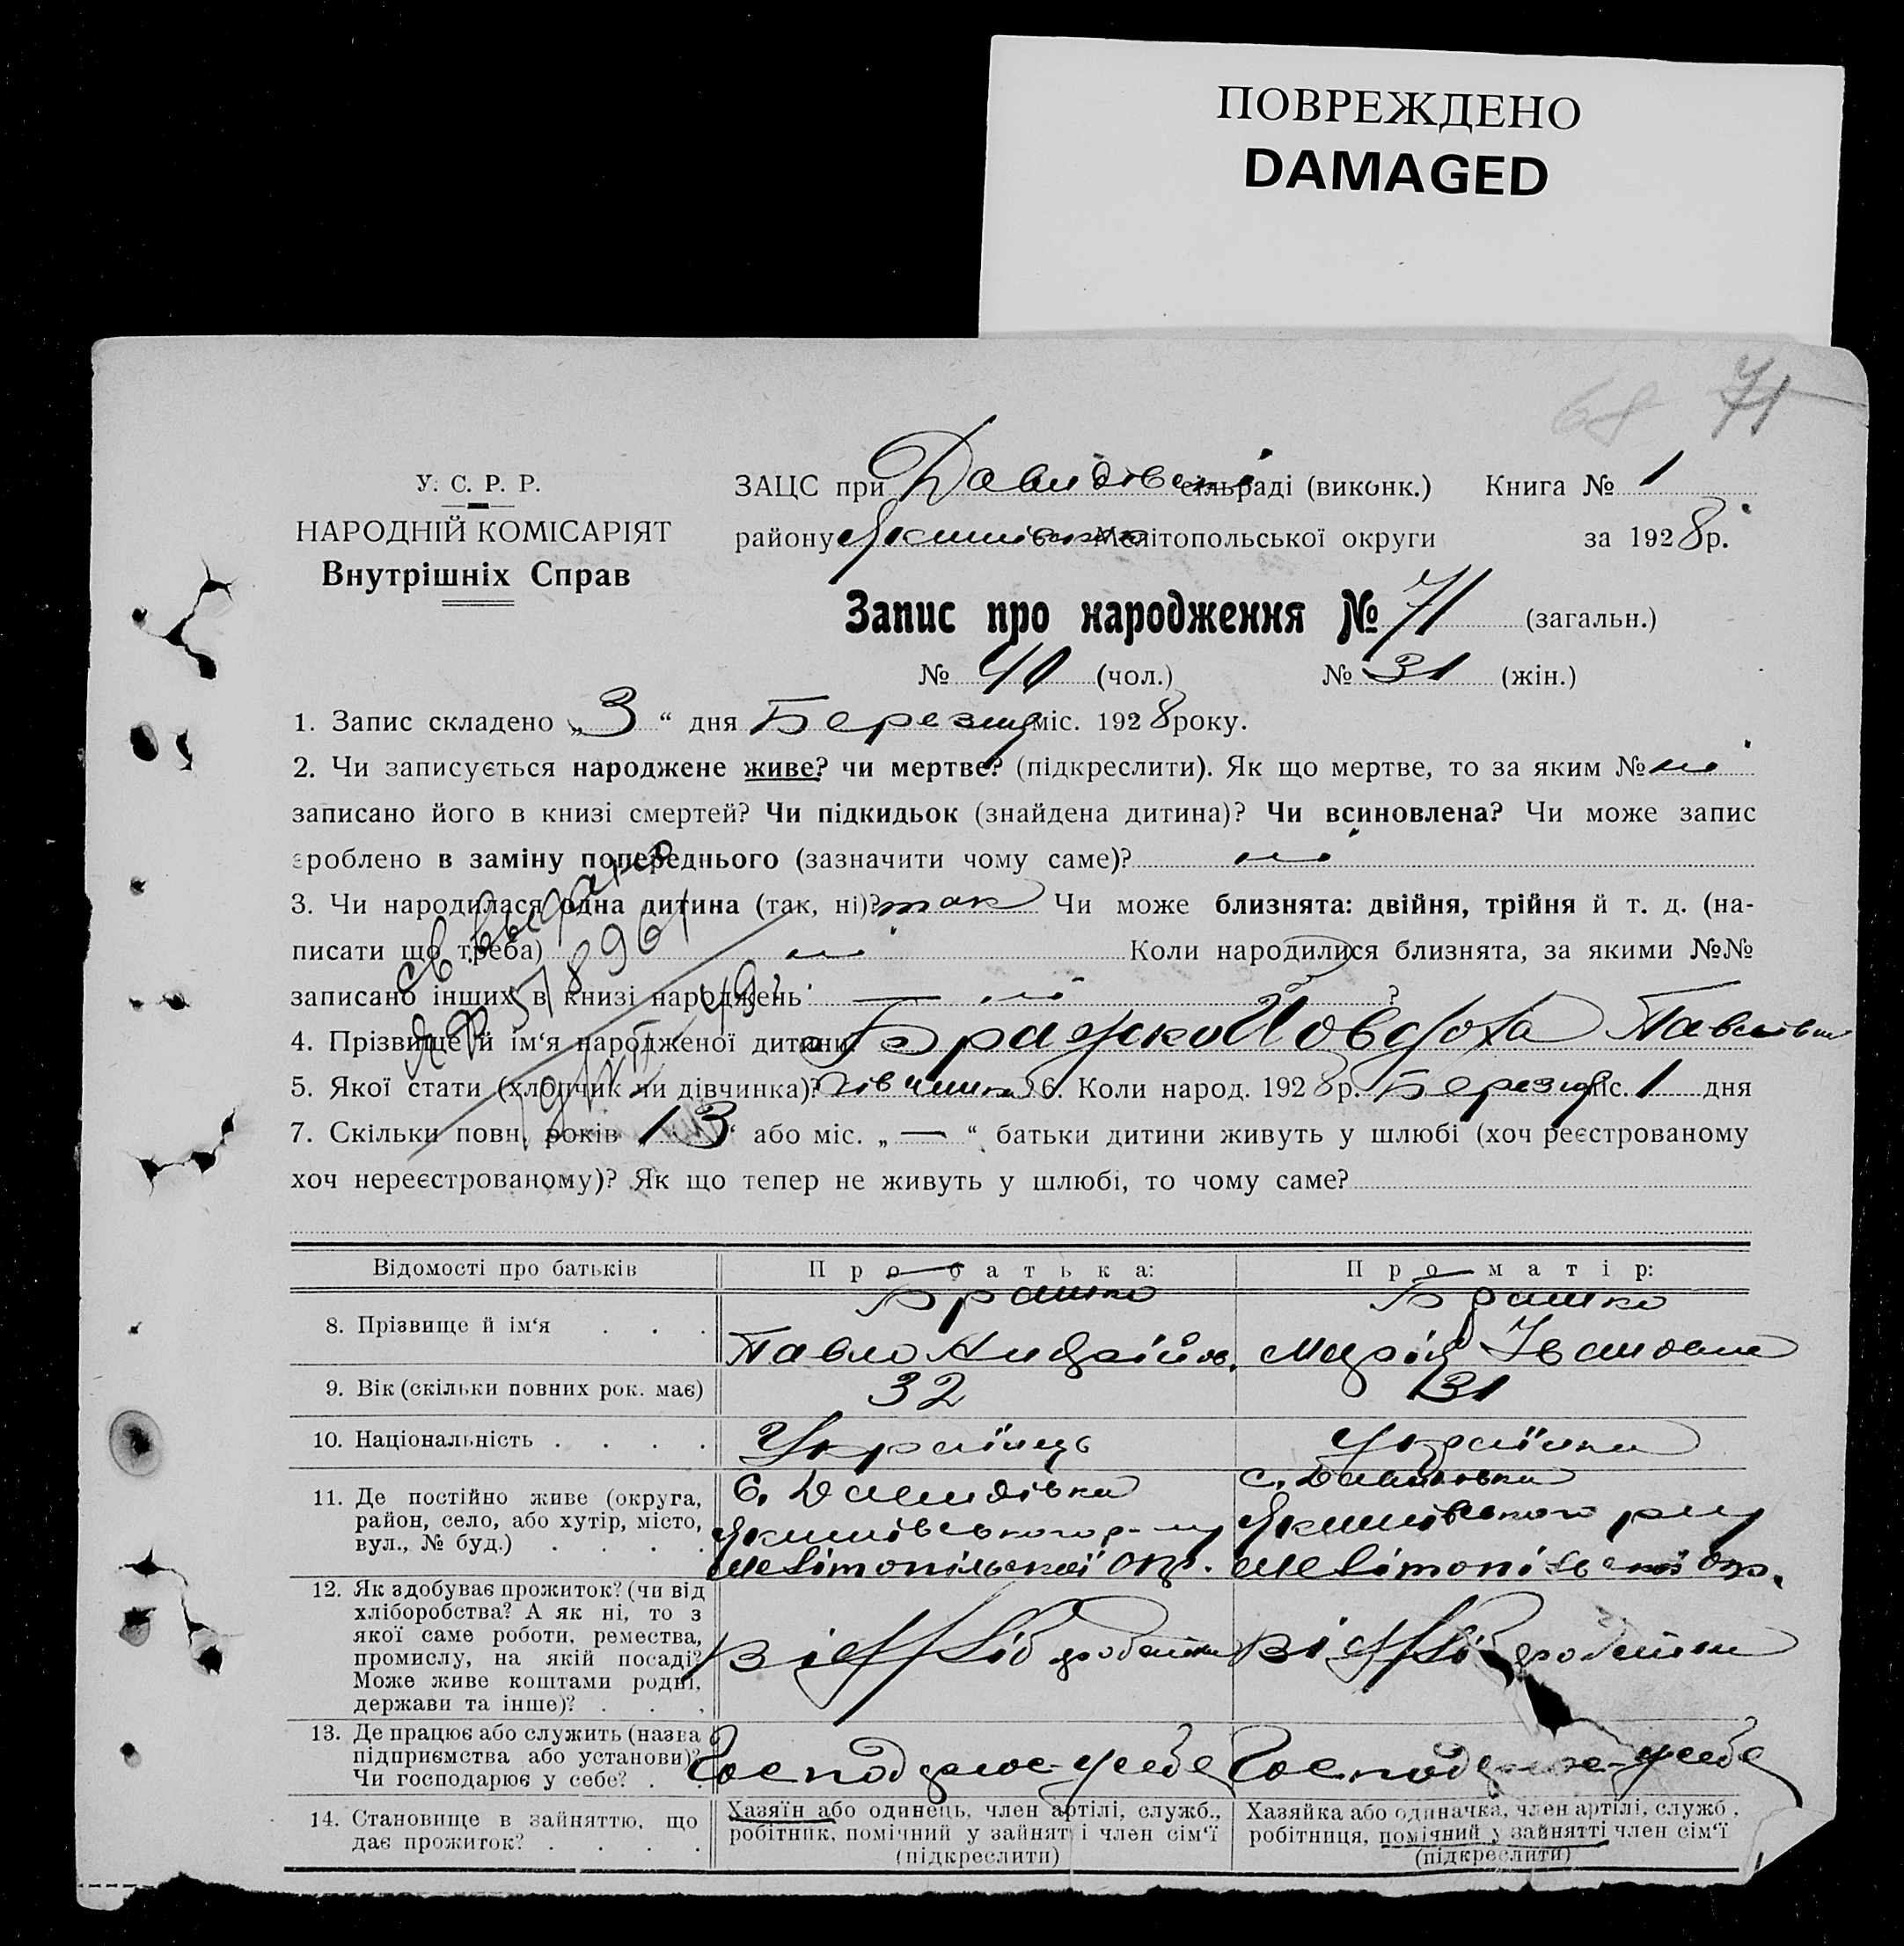 ПОВРЕЖДЕНО
DAMAGED
68 71
У. С. Р. Р.
НАРОДНІЙ КОМІСАРІЯТ
Внутрішніх Справ
ЗАЦС при Давидівські сільраді (виконк.) Книга № 1
району Мелітопольської округи за 1928 р.
Запис про народження № 71 (загальн.)
№ 40 (чол.) № 31 (жін.)
1. Запис складено „3“ дня Березня міс. 1928 року.
2. Чи записується народжене живе? чи мертве? (підкреслити). Як що мертве, то за яким № ні
записано його в книзі смертей? Чи підкидьок (знайдена дитина)? Чи всиновлена? Чи може запис
зроблено в заміну попереднього (зазначити чому саме)? ні
3. Чи народилася одна дитина (так, ні)? так Чи може близнята: двійня, трійня й т. д. (на-
писати що треба) ні Коли народилися близнята, за якими №№
записано інших в книзі народжень — ні ?
4. Прізвище й ім‘я народженої дитини? Павлівна
5. Якої стати (хлопчик чи дівчинка)? дівчинка 6. Коли народ. 1928 р. Березня міс. 1 дня
7. Скільки повн. років „13“ або міс. „—“ батьки дитини живуть у шлюбі (хоч реєстрованому
хоч нереєстрованому)? Як що тепер не живуть у шлюбі, то чому саме?
Відомості про батьків Про батька: Про матір:
8. Прізвище й ім‘я . . . Брашко Павло Андрійов. Брашко Марія Івановна
9. Вік (скільки повних рок. має) 32 31
10. Національність . . . . Українець Українка
11. Де постійно живе (округа,
район, село, або хутір, місто,
вул., № буд.) . . . .
С. Давидівка
Якимівського р-ну
Мелітопільської окр.
с. Давидовка
Якимівського р-ну
Мелітопільської окр.
12. Як здобуває прожиток? (чи від
хліборобства? А як ні, то з
якої саме роботи, ремества,
промислу, на якій посаді?
Може живе коштами родні,
держави та інше)? . . .
Від хліборобства Від хліборобства
13. Де працює або служить (назва
підприємства або установи)?
Чи господарює у себе? .
Господарює у себе Господарює у себе
14. Становище в зайняттю, що
дає прожиток? . . . .
Хазяїн або одинець, член артілі, служб.,
робітник, помічний у зайнятті член сім‘ї
(підкреслити)
Хазяйка або одиначка, член артілі, служб.,
робітниця, помічний у зайнятті член сім‘ї
(підкреслити)